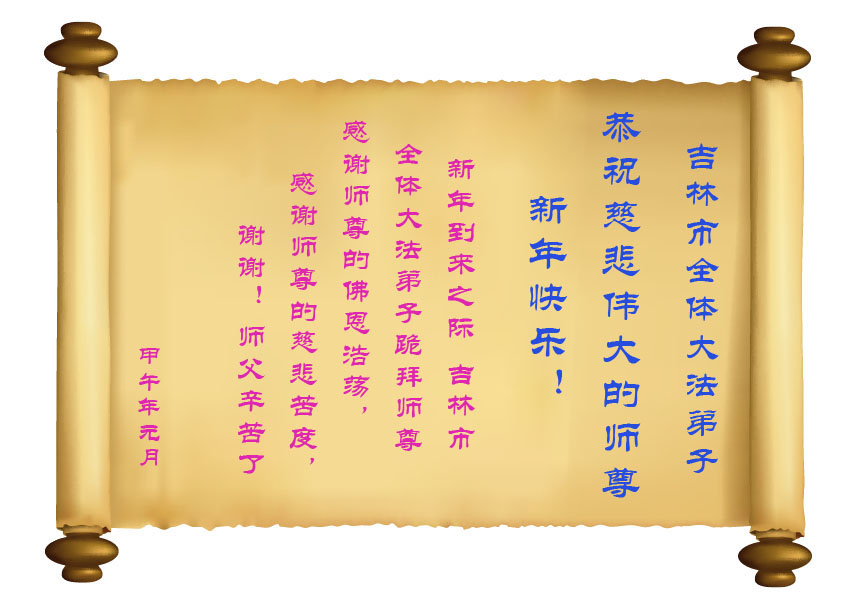 吉林市全体大法弟子
恭祝慈悲伟大的师尊
新年快乐！
新年到来之际 吉林市
全体大法弟子跪拜师尊
感谢师尊的佛恩浩荡，
感谢师尊的慈悲苦度，
谢谢！师父辛苦了
甲午年元月